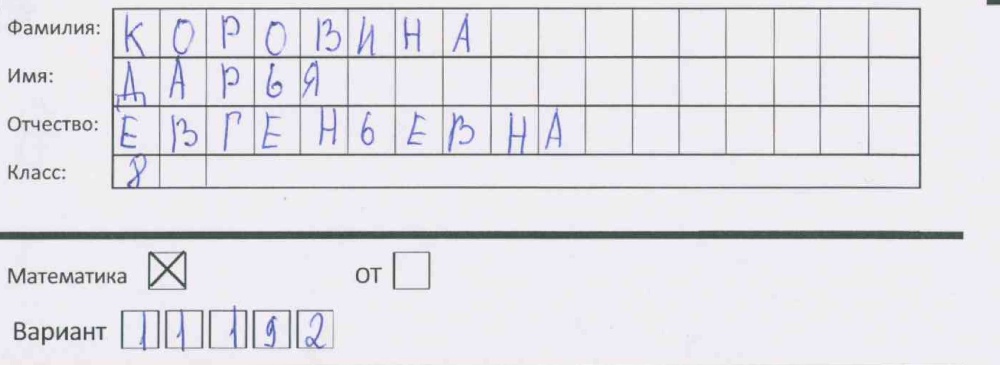 Фамилия: КОРОВИНА
Имя: ДАРЬЯ
Отчество: ЕВГЕНЬЕВНА
Класс: 8
Математика ☒ ОТ ☐
Вариант 11192